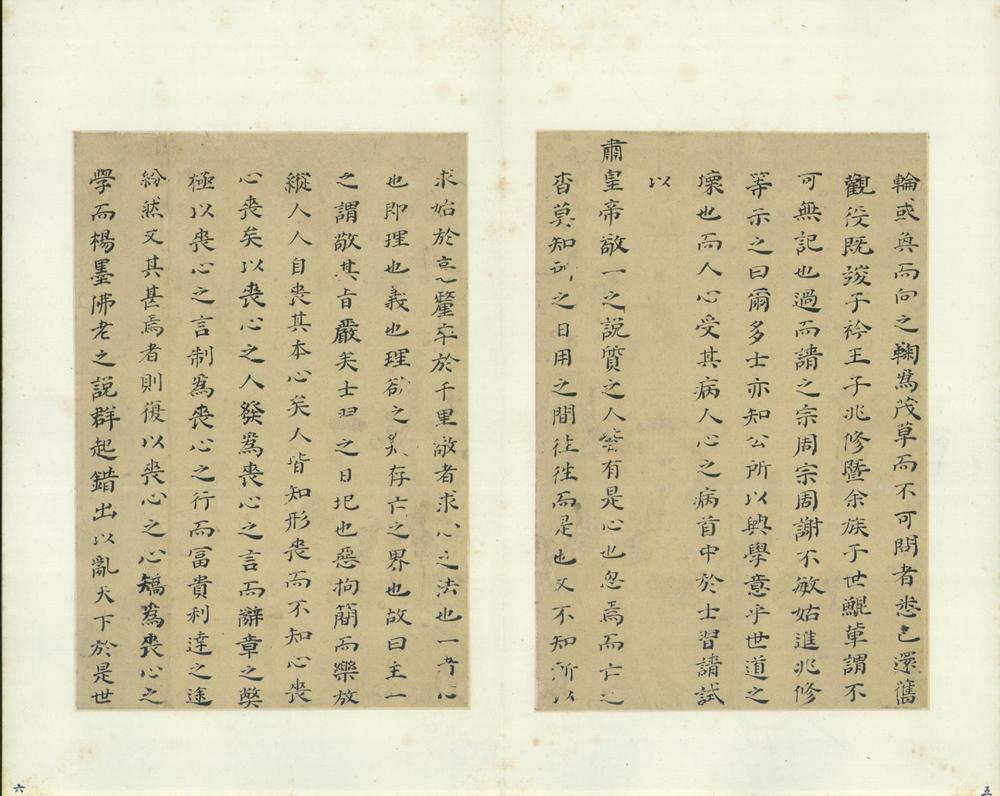 輪或奠而向之鞠為茂草而不可問者悉已還舊
觀役既竣子衿王子兆修暨余族子世鯤輩謂不
可無記也過而請之宗周宗周謝不敏姑進兆修
等示之曰爾多士亦知公所以興學意乎世道之
壞也而人心受其病人心之病首中於士習請試
以
肅皇帝敬一之說質之人莫不有是心也忽焉而亡之
杳莫知所之日用之間往往而是也又不知所以
求始於毫釐卒於千里敬者求心之法也一者心
也即理也義也理欲之判存亡之界也故曰主一
之謂敬其旨嚴矣士習之日圮也惡拘簡而樂放
縱人人自喪其本心矣人皆知形喪而不知心喪
心喪矣以喪心之人發為喪心之言而辭章之獘
極以喪心之言制為喪心之行而富貴利達之途
紛然又其甚焉者則復以喪心之心矯為喪心之
學而楊墨佛老之說群起錯出以亂天下於是世
五
六